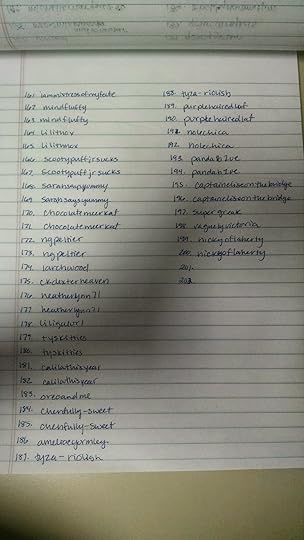 161. iammistressofmyfate
162. mindfluffy
163. mindfluffy
164. lilithox
165. lilithnox
166. scootypuffjrsucks
167. Scootypuffjrsucks
168. sarahsaysyummy
169. Sarahsaysyummy
170. Chocolatemeerkat
171. Chocolatemeerkat
172. ngpeltier
173. ngpeltier
174. larchwood
175. ekdexterheaven
176. heatherlynn71
177. heatherlynn71
178. liligulurl
179. tyskitties
180. tyskitties
181. calilathisyear
182. calilathisyear
183. oreoandme
184. chenfully-sweet
185. chenfully-sweet
186.
187. tyza-riolish
188. tyza-riolish
189. purplehairedleaf
190. purplehairedlaf
191. nolechica
192. nolechica
193. pandab1ue
194. pandab1ue
195. captaineliseonthebridge
196. captaineliseonthebridge
197. supergeak
198. vaguelyvictoria
199. nickyoflaherty
200. nickyoflaherty
201.
202.